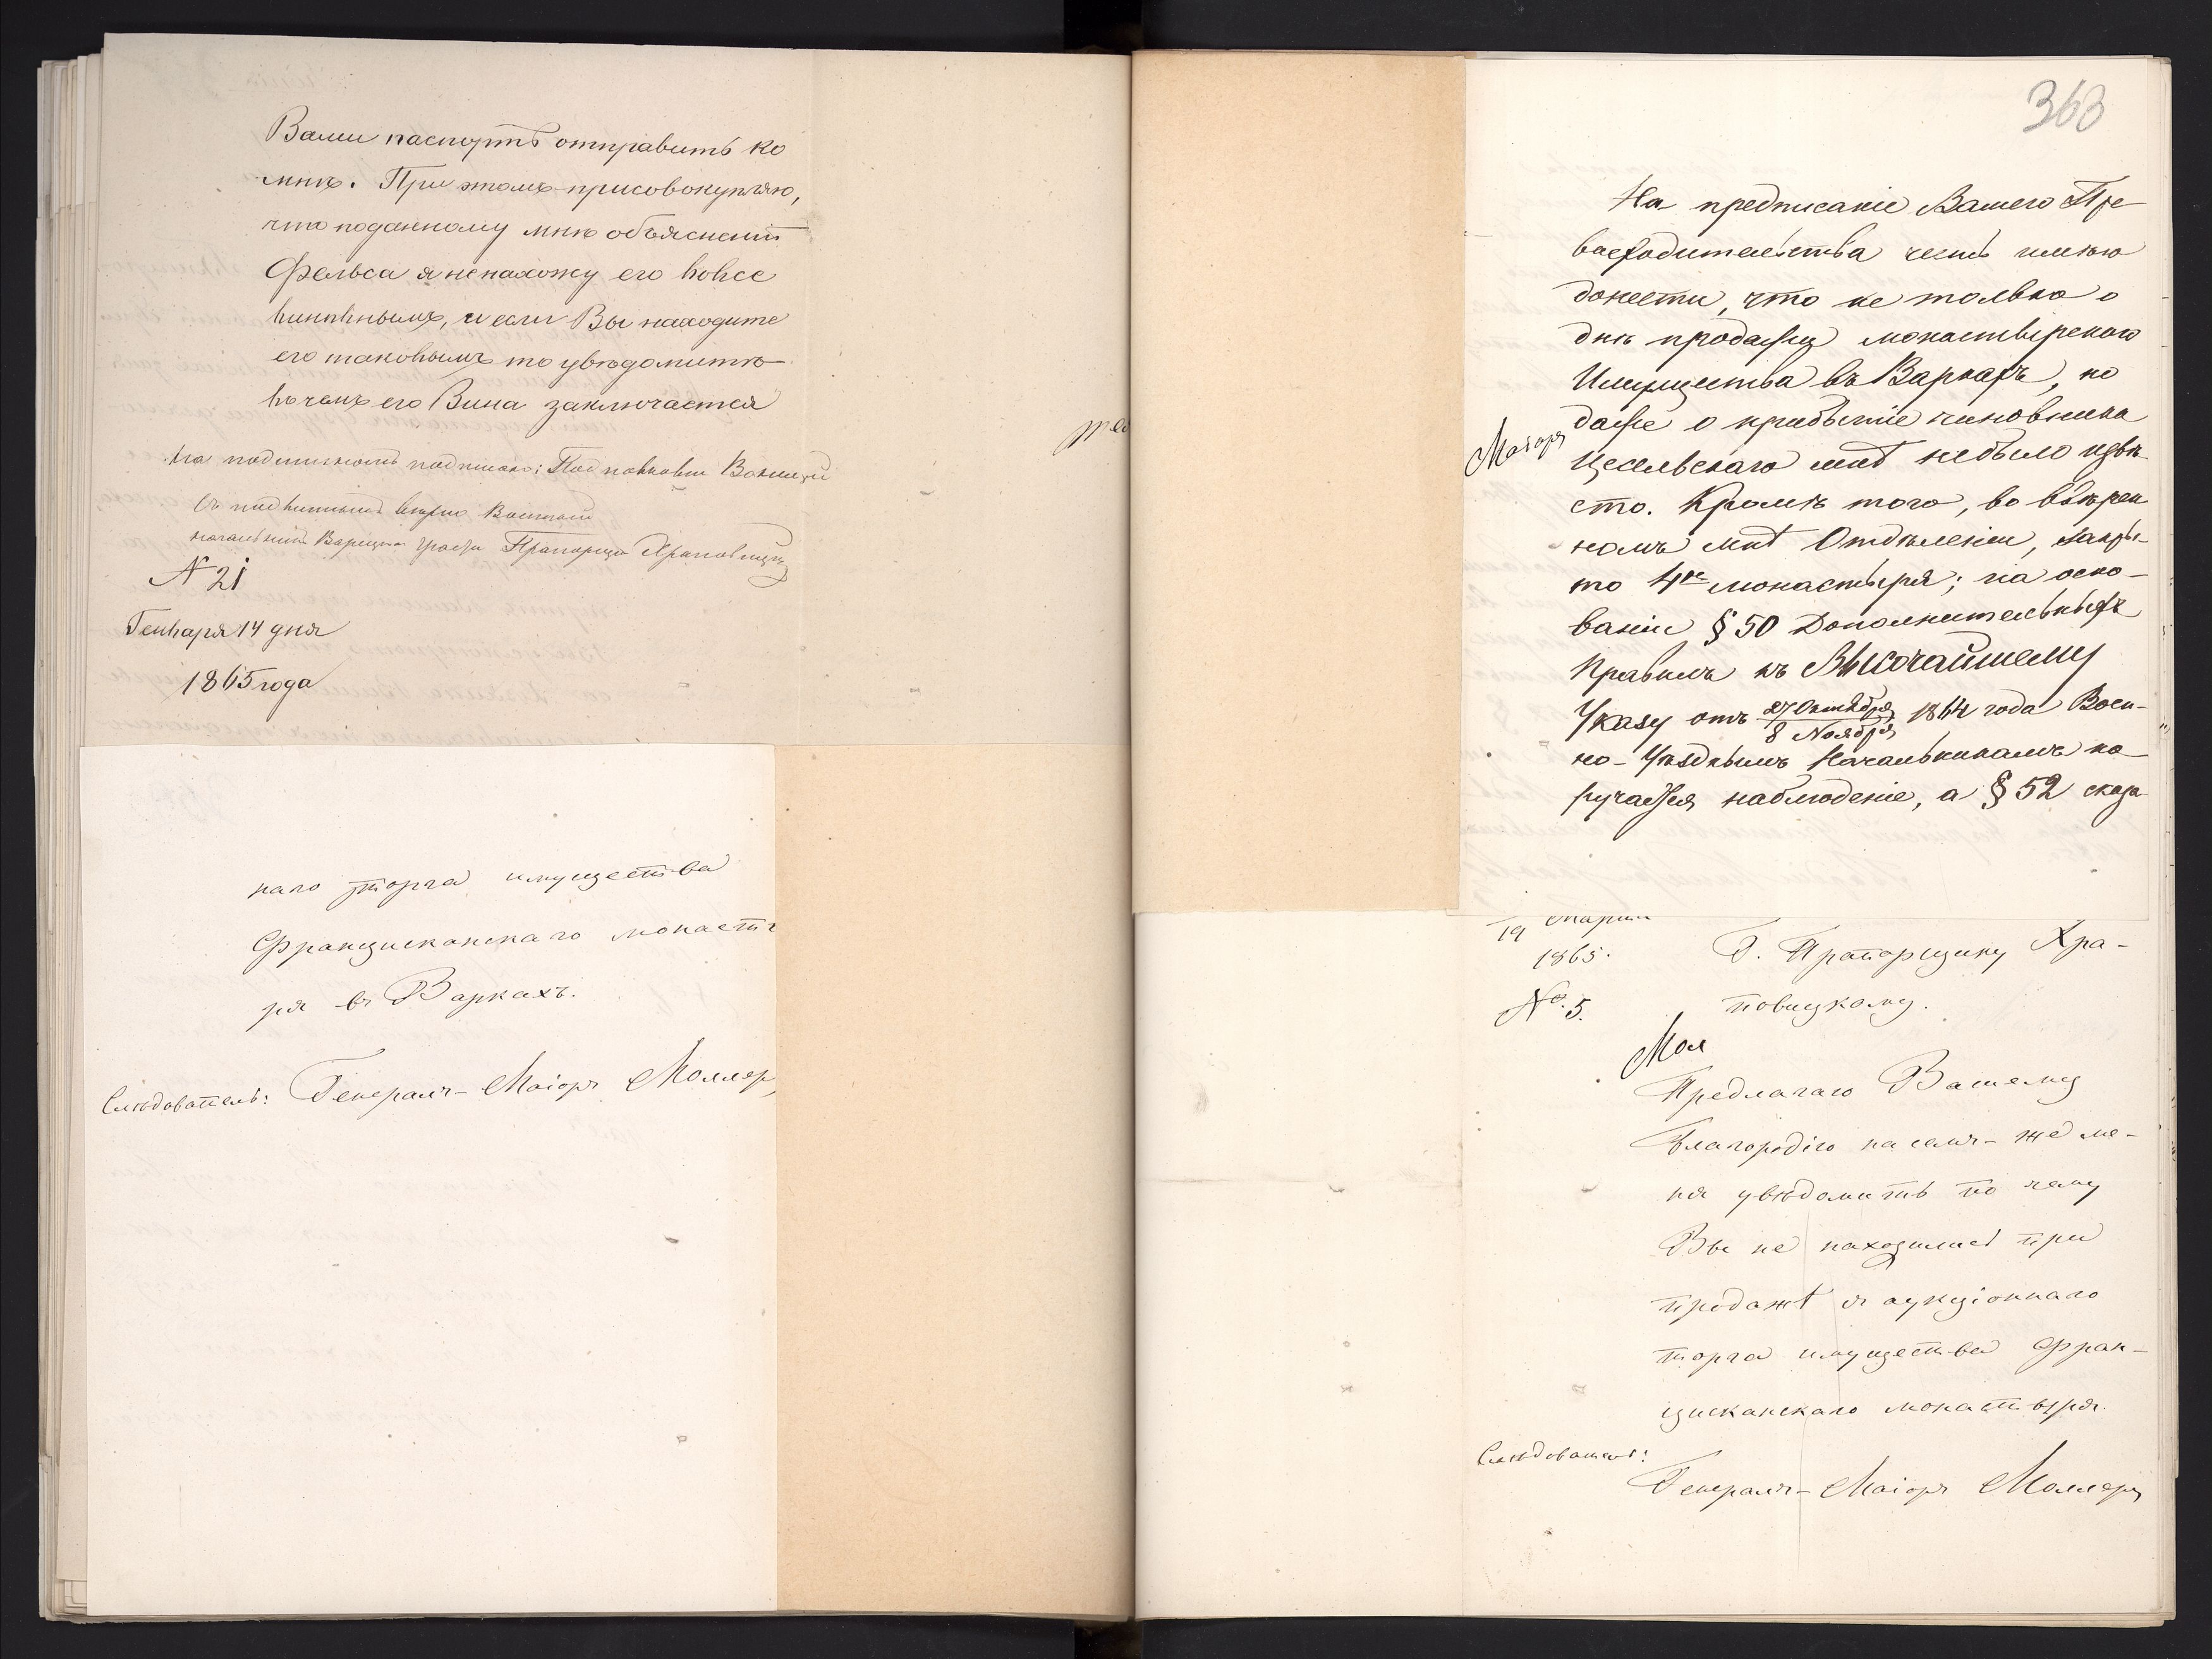 Вами паспортъ отправить ко
мнѣ. При этомъ присовокупляю,
что поданному мнѣ объясненію
Фельса я ненахожу его вовсе
виннѣнымъ, и если Вы находите
его таковымъ то увѣдомитѣ
въ чемъ его Вина заключается
На подлинномъ подписалъ: Подполковникъ
Съ подлиннымъ вѣрно Военный
начальникъ Прапорщикъ Храповицкій
№ 21
Генваря 14 дня
1865 года
наго торга имущества
Францисканскаго монасты
ря въ Варкахъ.
Слѣдователь: Генералъ-Маіоръ Моллеръ
363
На предписаніе Вашего Пре-
восходительства честь имѣю
донести, что не только о
днѣ продажи монастырскаго
Имущества въ Варкахъ, но
даже о прибытіе чиновника
Цесельскаго мнѣ небыло извѣ-
сто. Кромѣ того, во ввѣрен
номъ мнѣ Отдѣленіи, закры-
то 4ре монастыря; на осно-
ваніи § 50 Дополнительныхъ
Правилъ къ Высочайшему
Указу отъ 27 Октября/8 Ноября 1864 года Воен-
но-Уѣзднымъ Начальникамъ по-
ручается наблюденіе, а § 52 сказа
19 Марта
1865.
Г. Прапорщику Хра-
повицкому.
№. 5.
Предлагаю Вашему
Благородію на семъ-же ме-
ня увѣдомить по чему
Вы не находились при
продажѣ съ аукціоннаго
торга имущества Фран-
цисканскаго монастыря.
Слѣдователь:
Генералъ-Маіоръ Моллеръ